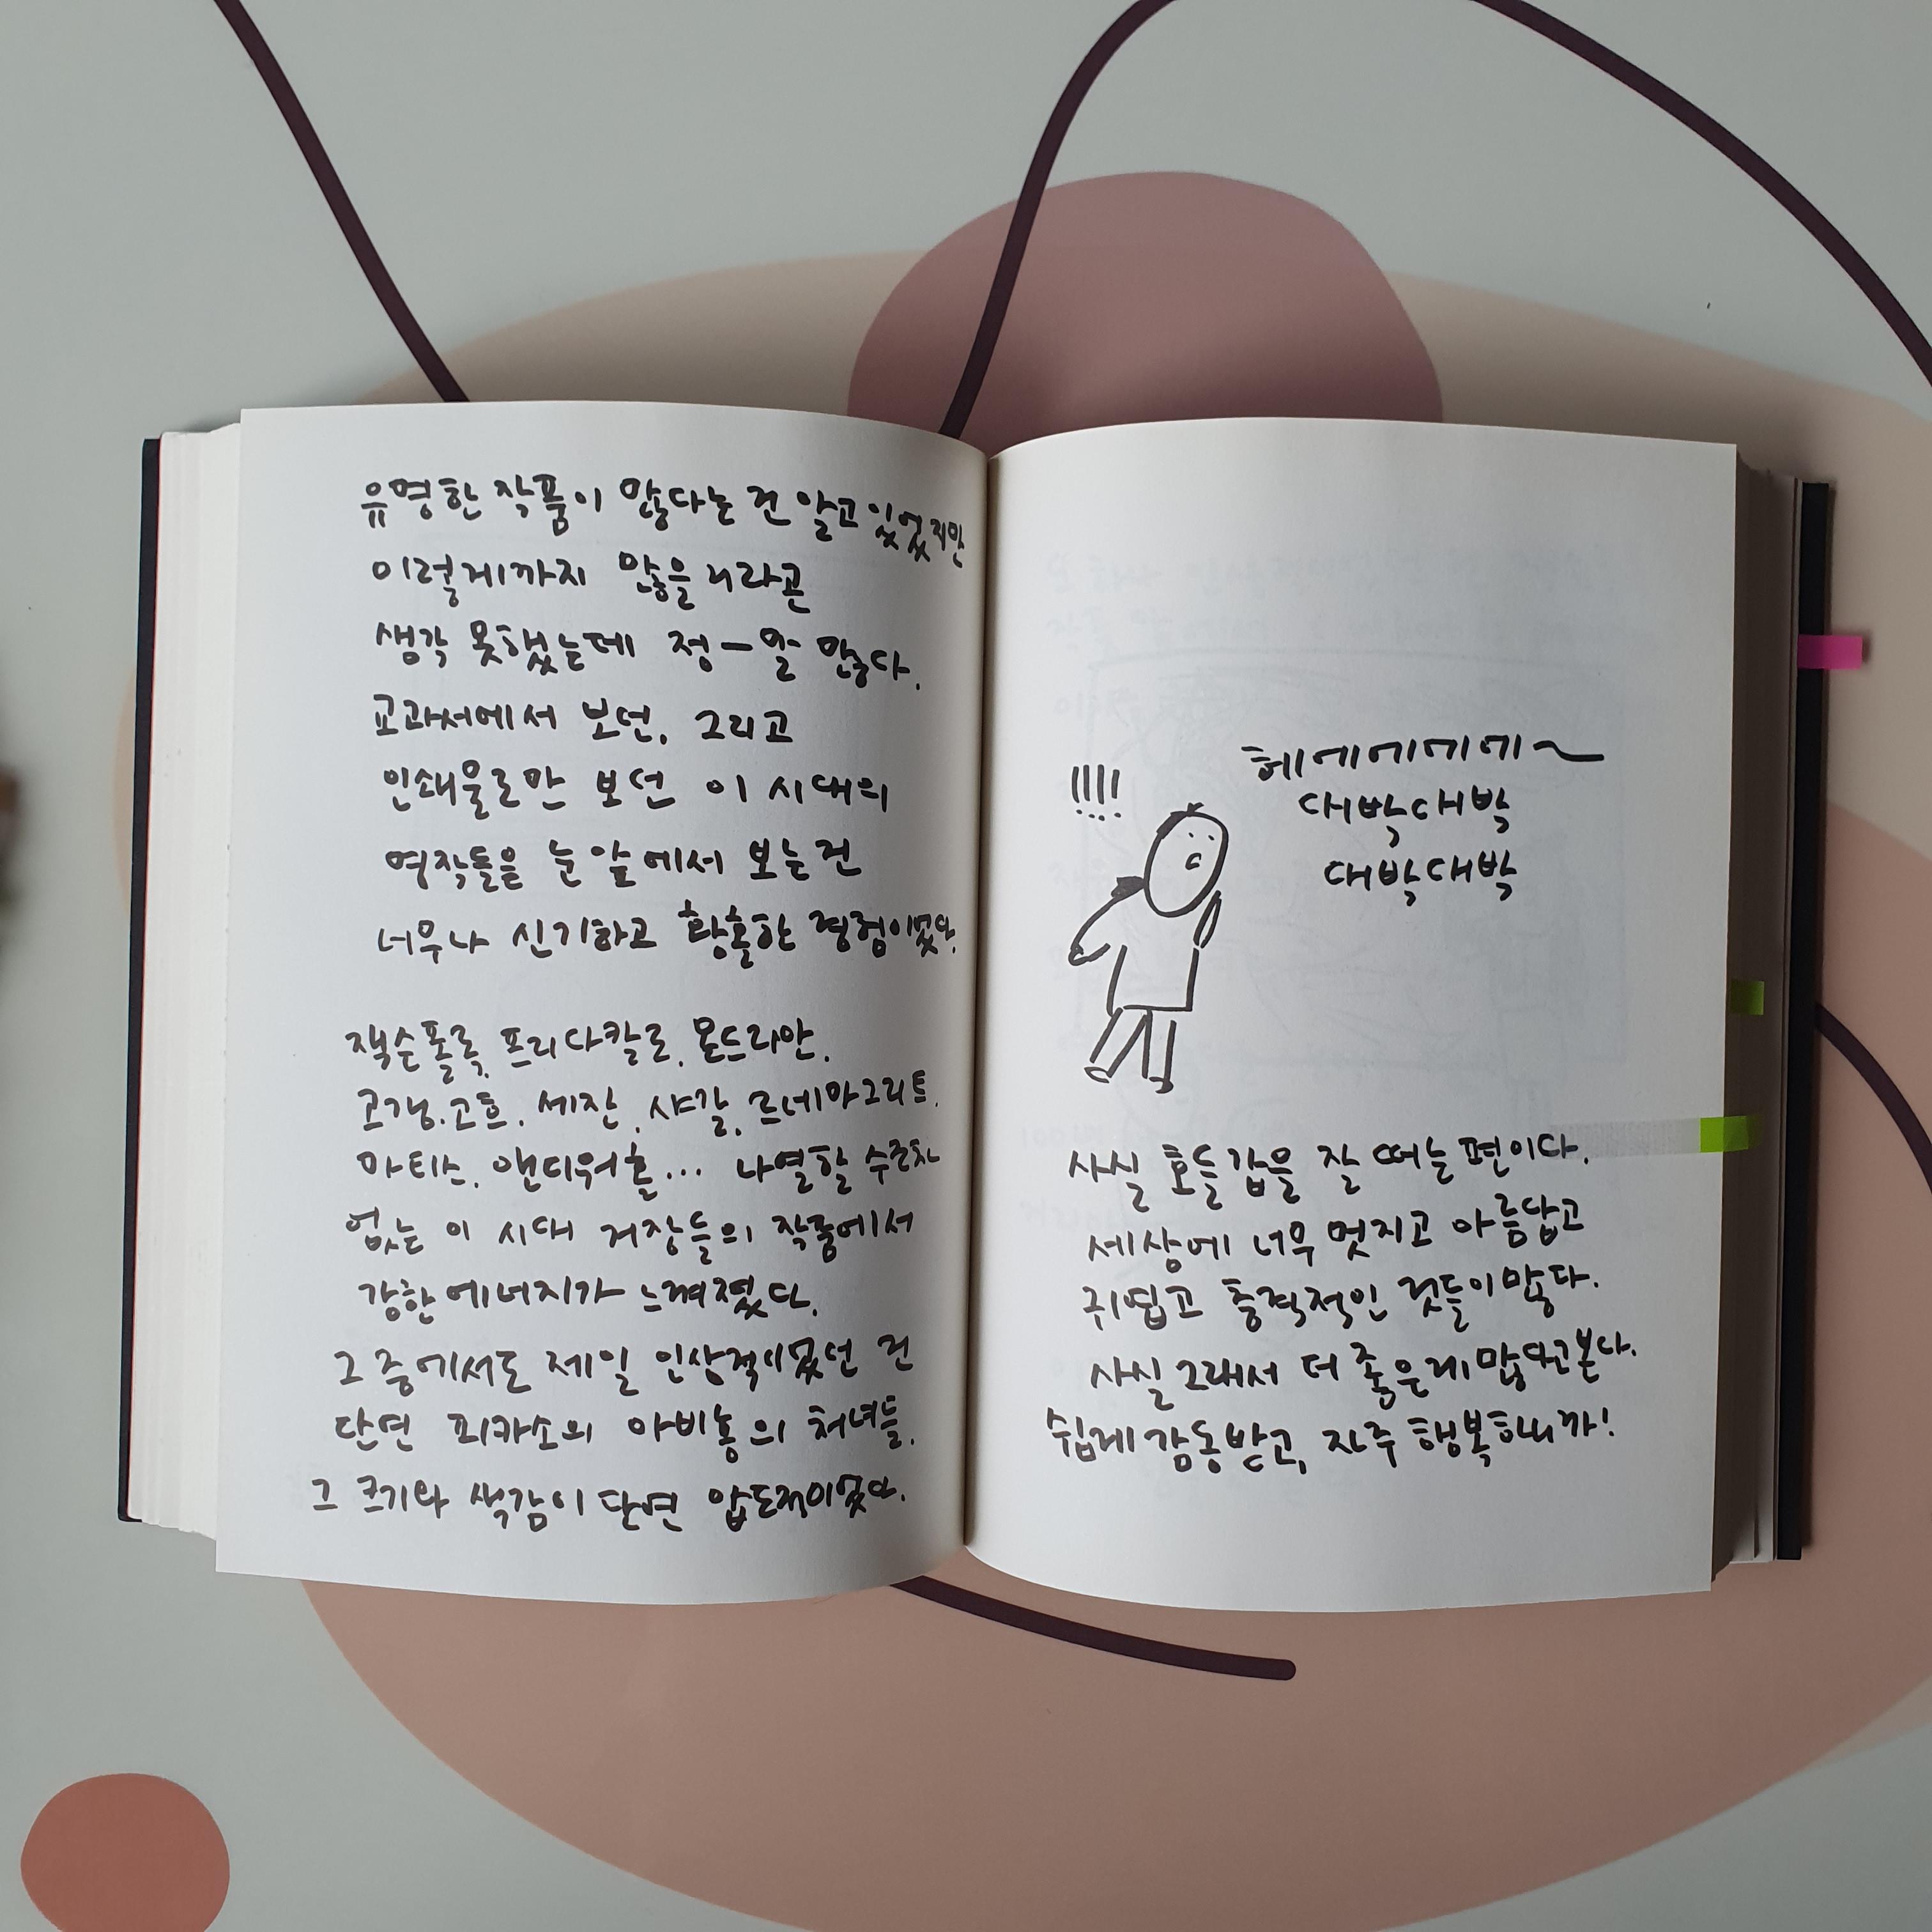 유명한 작품이 많다는 건 알고 있었지만
이렇게까지 많을 거라곤
생각 못했는데 정-말 많다.
교과서에서 보던, 그리고
인쇄물로만 보던 이 시대의
역작들을 눈 앞에서 보는건
너무나 신기하고 황홀한 경험이었다.
잭슨폴록, 프리다칼로, 몬드리안,
고갱, 고흐, 세잔, 샤갈, 르네마그리트,
마티스, 앤디워홀... 나열할 수조차
없는 이 시대 거장들의 작품에서
강한 에너지가 느껴졌다.
그 중에서도 제일 인상적이었던 건
단연 피카소의 아비뇽의 처녀들.
그 크기와 색감이 단연 압도적이었다.
!!!!
헤에에에에~
대박대박
대박대박
사실 호들갑을 잘 떠는 편이다.
세상에 너무 멋지고 아름답고
귀엽고 충격적인 것들이 많다.
사실 그래서 더 좋은게 많다고 본다.
쉽게 감동받고, 자주 행복하니까!